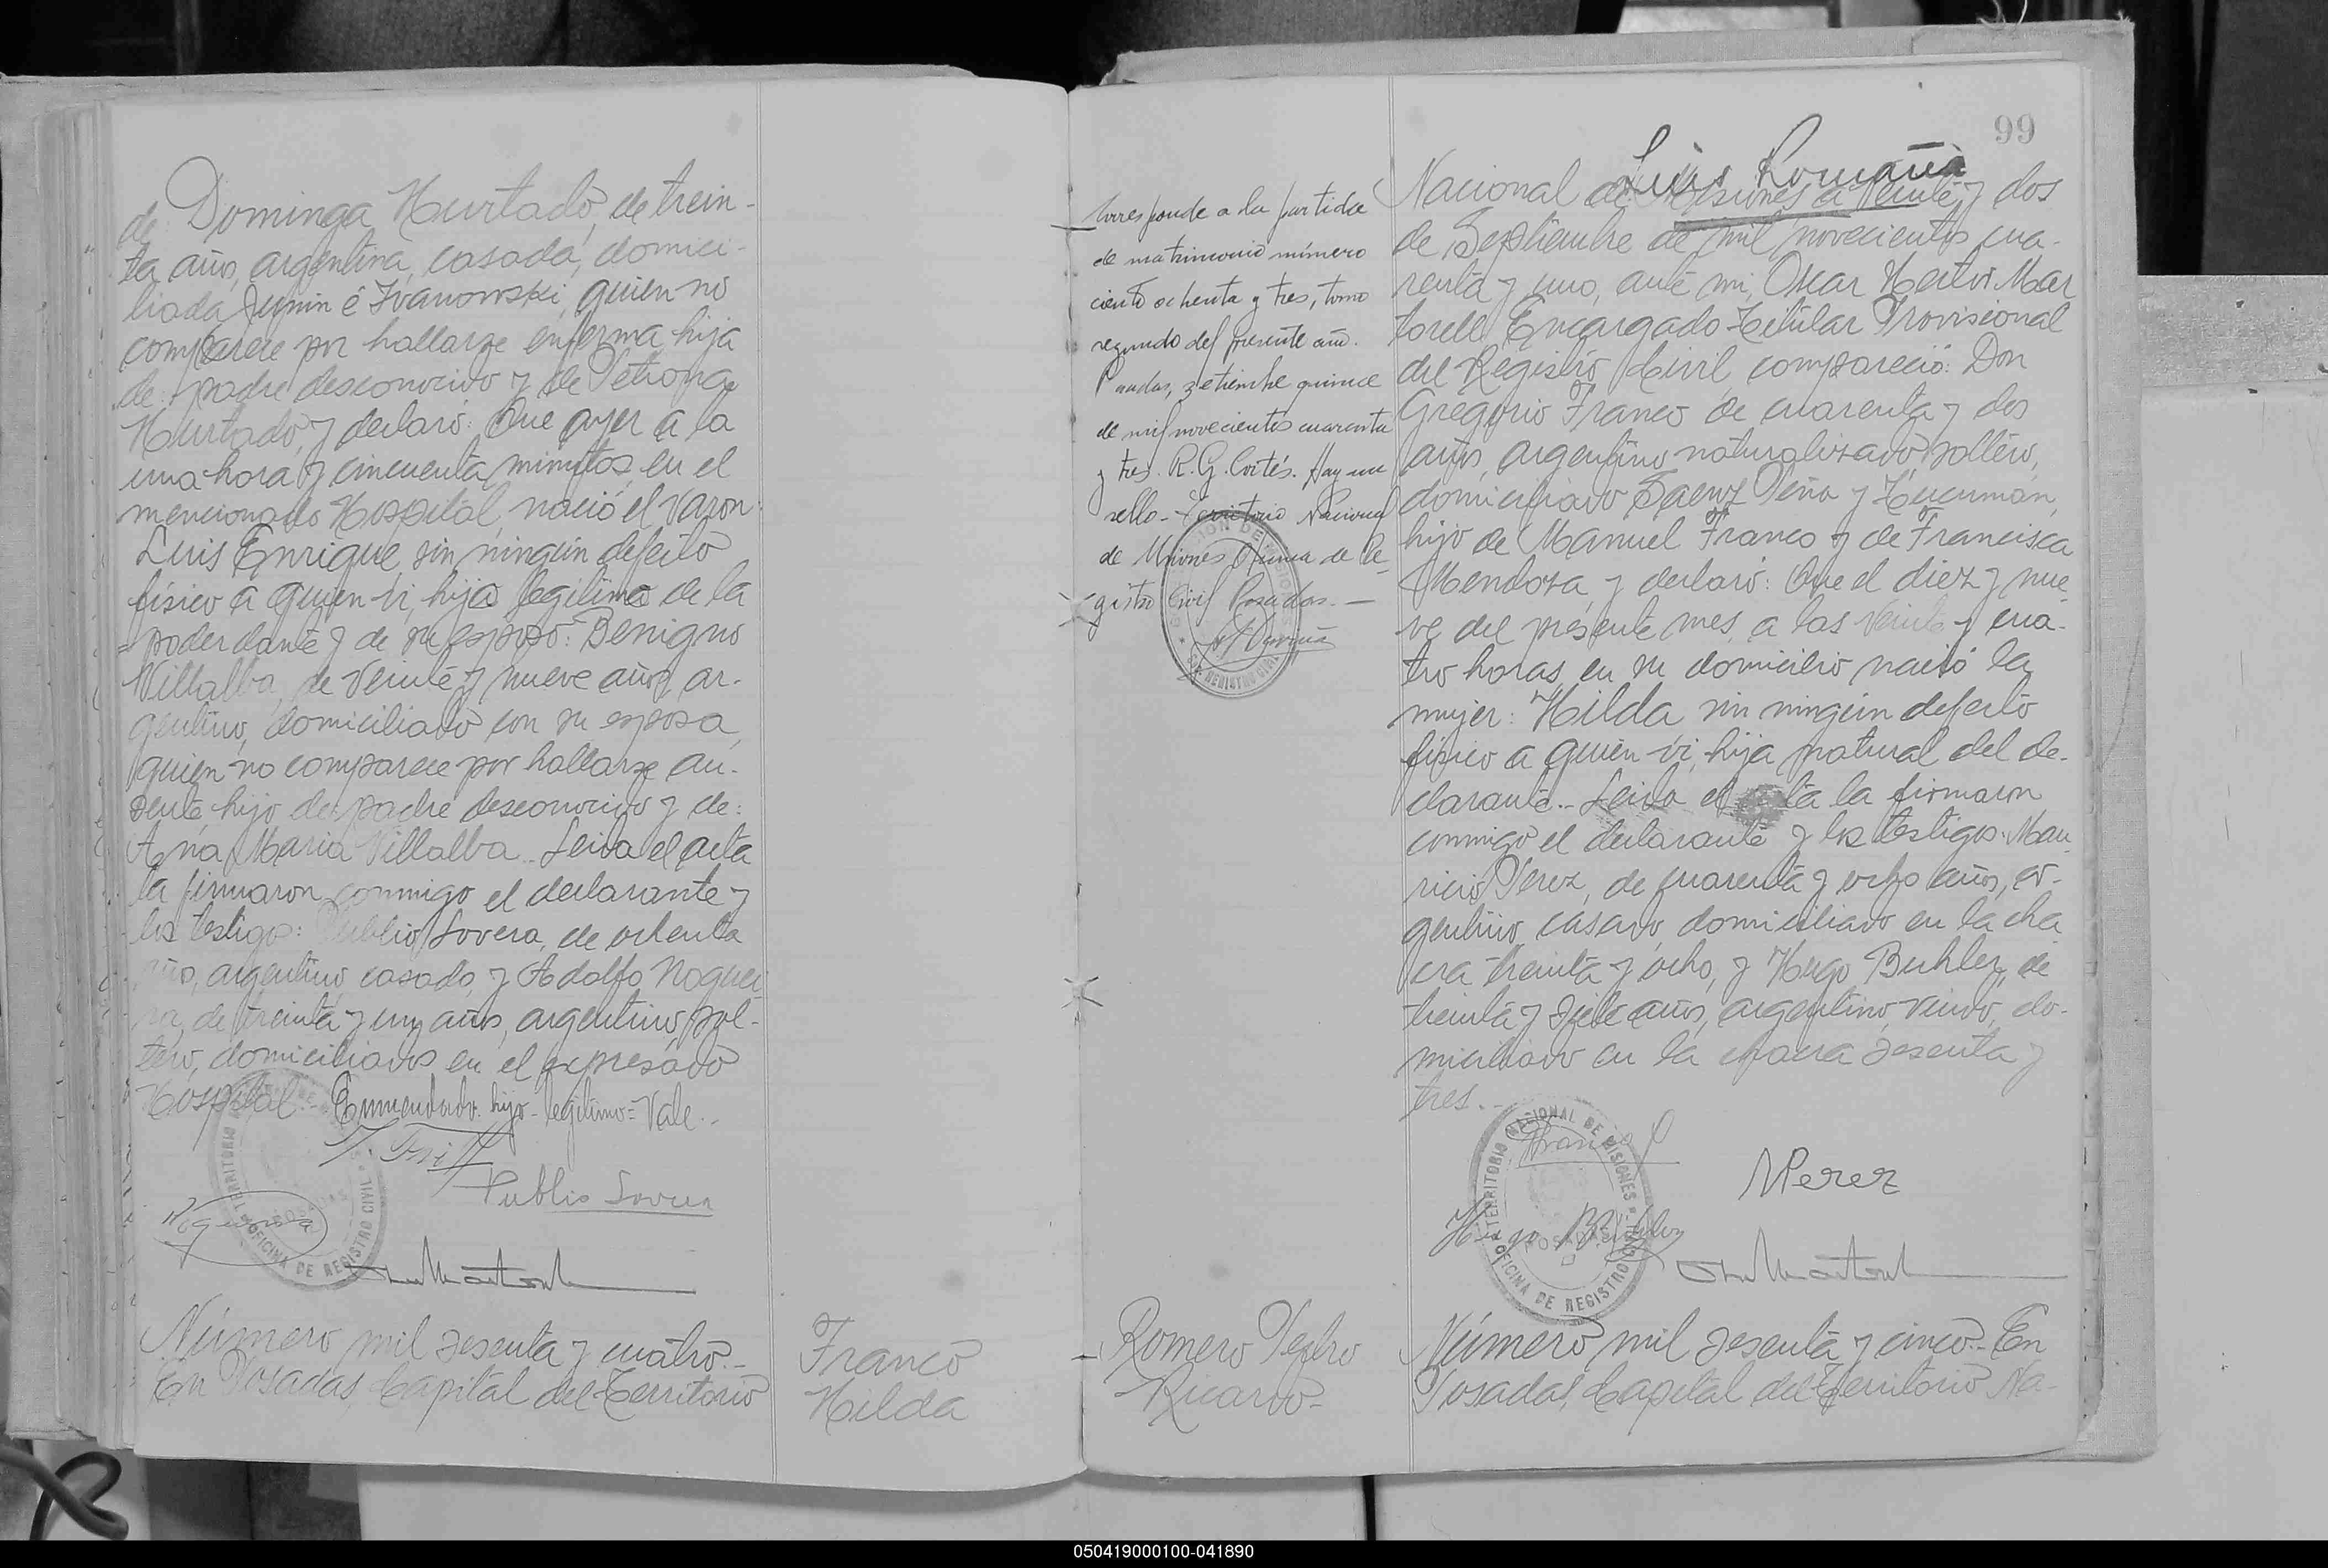 de Dominga Hurtado, de trein-
ta años, argentina, casada, domici-
liada Junin é Ivanowski, quien no
comparece por hallarse enferma, hija
de padre desconocido y de Petrona
Hurtado, y declaró: Que ayer a la
una hora y cincuenta minutos, en el
mencionado Hospital, nació el varon:
Luis Enrique, sin ningún defecto
físico a quien vi, hijo legitimo de la
poderdante y de su esposo: Benigno
Villalba, de veinte y nueve años, ar-
gentino, domiciliado con su esposa,
quien no comparece por hallarse au-
sente, hijo de padre desconocido y de:
Ana Maria Villalba.- Leida el acta
la firmaron conmigo el declarante y
los testigos: Publio Lovera, de ochenta
años, argentino, casado, y Adolfo Noguei-
ra, de treinta y un años, argentino, sol-
tero, domiciliados en el expresado
Hospital.- Enmendado: hijo-legitimo=Vale.-
Publio Lovera
TERRITORIO
OFICINA DE REGISTRO CIVIL
Número mil sesenta y cuatro.-
En Posadas, Capital del Territorio
Franco
Hilda
99
Luis Romaña
Corresponde a la partida
de matrimonio número
ciento ochenta y tres, tomo
segundo del presente año.
Posadas, setiembre quince
de mil novecientos cuarenta
y tres. R. G. Cortés. Hay un
sello - Territorio Nacional
de Misiones Oficina de Re-
gistro Civil Posadas.-
Romero Pedro
Ricardo-
Nacional de Misiones a veinte y dos
de Septiembre de mil novecientos cua-
renta y uno, ante mi, Oscar Hector Mar
torell Encargado Titular Provisional
del Registro Civil, compareció: Don
Gregorio Franco de cuarenta y dos
años, argentino naturalizado, soltero,
domiciliado Saenz Peña y Tucumán,
hijo de Manuel Franco y de Francisca
Mendoza, y declaró: Que el diez y nue-
ve del presente mes, a las veinte y cua-
tro horas, en su domicilio nació la
mujer: Hilda sin ningún defecto
físico a quien vi, hija natural del de-
clarante.- Leida el acta la firmaron
conmigo el declarante y los testigos: Mau-
ricio Perez, de cuarenta y ocho años, ar-
gentino, casado, domiciliado en la cha
cra treinta y ocho, y Hugo Buhler, de
treinta y siete años, argentino, viudo, do-
miciliado en la chacra sesenta y
tres.-
TERRITORIO NACIONAL DE MISIONES
POSADAS
OFICINA DE REGISTRO CIVIL
Franco
MPerez
Hugo Buhler
Número mil sesenta y cinco.- En
Posadas, Capital del Territorio Na-
050419000100-041890